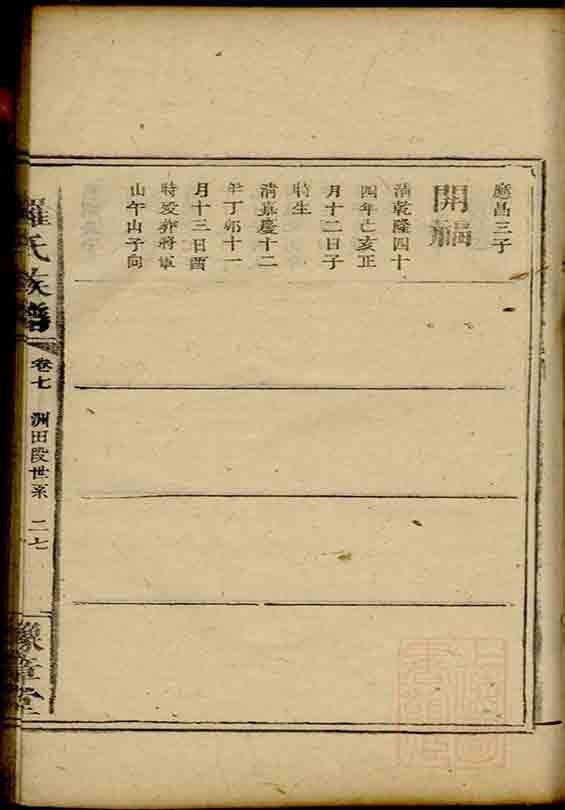 應昌三子
開福
清乾隆四十
四年己亥正
月十二日子
時生
清嘉慶十二
年丁卯十一
月十三日酉
時歿葬將軍
山午山子向
羅氏族譜
卷七
洲田段世系
二七
豫章堂